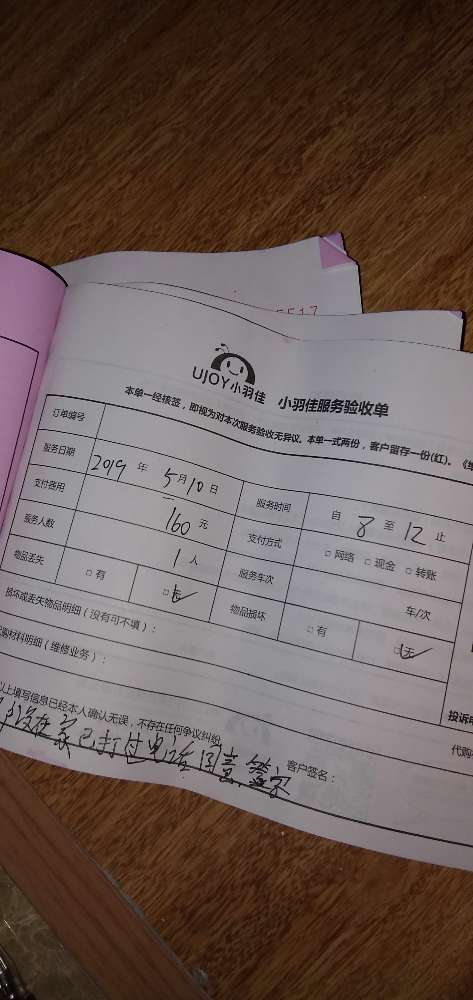 UJOY小羽佳 小羽佳服务验收单
本单一经核签，即视为对本次服务验收无异议。本单一式两份，客户留存一份(红)。
订单编号
服务日期 2019 年 5 月 10 日 服务时间 自 8 至 12 止
支付费用 160 元 支付方式 □ 网络 □ 现金 □ 转账
服务人数 1 人 服务车次 车/次
物品丢失 □ 有 □ 无 物品损坏 □ 有 □ 无
损坏或丢失物品明细（没有可不填）：
材料明细（维修业务）：
以上填写信息已经本人确认无误，不存在任何争议纠纷
客户签名：
没在家已打过电话同意签字
投诉
代购